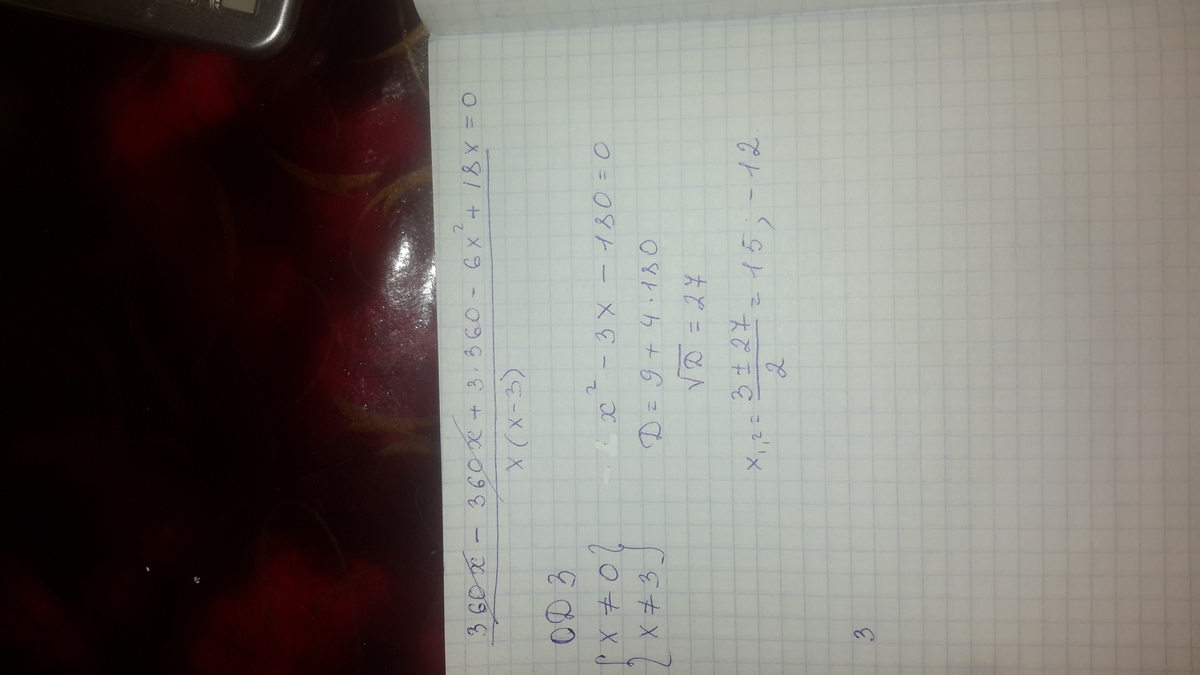 360x - 360x + 3·360 - 6x² + 18x = 0
x(x-3)
ОДЗ
{ x ≠ 0 }
{ x ≠ 3 }
x² - 3x - 180 = 0
D = 9 + 4·180
√D = 27
x₁,₂ = (3 ± 27)/2 = 15; -12.
3